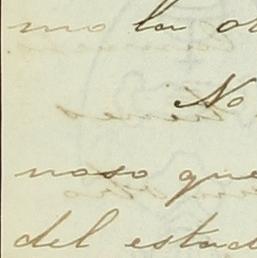 mo la o
No
noso que
del estad